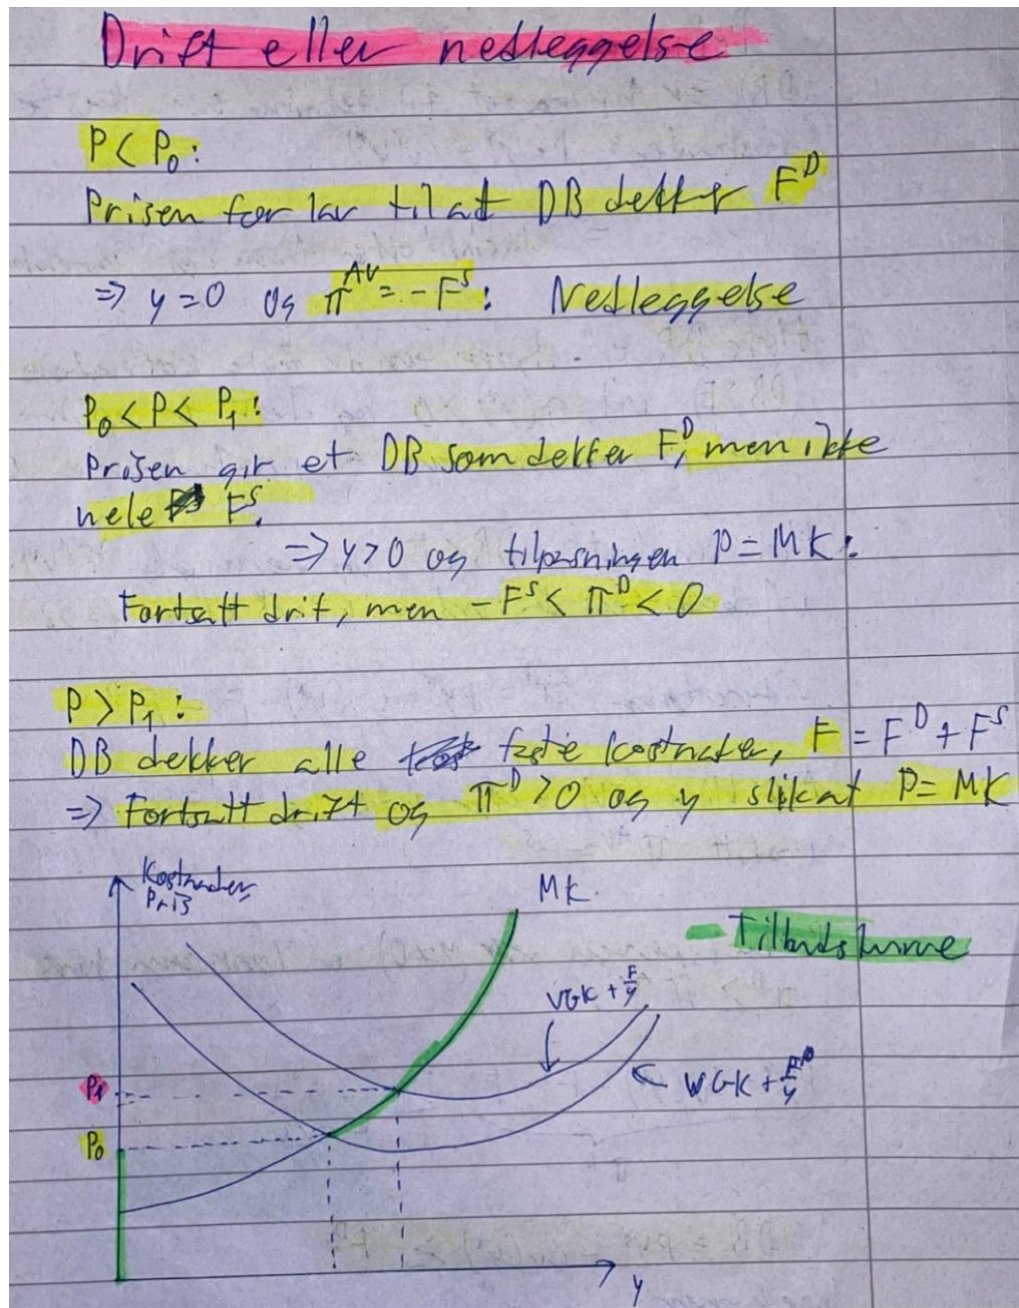 Drift eller nedleggelse
P < P₀:
Prisen for lav til at DB dekker F^D
⇒ y = 0 og π^AV = -F^S: Nedleggelse
P₀ < P < P₁:
Prisen gir et DB som dekker F^D, men ikke
hele F^S.
⇒ y > 0 og tilpasningen p = MK:
Fortsatt drift, men -F^S < π^D < 0
P > P₁:
DB dekker alle faste kostnader, F = F^D + F^S
⇒ Fortsatt drift og π^D > 0 og y slik at P = MK
Kostnader,
Pris
MK
- Tilbudskurve
VGK + F/y
VGK +
P₁
P₀
y